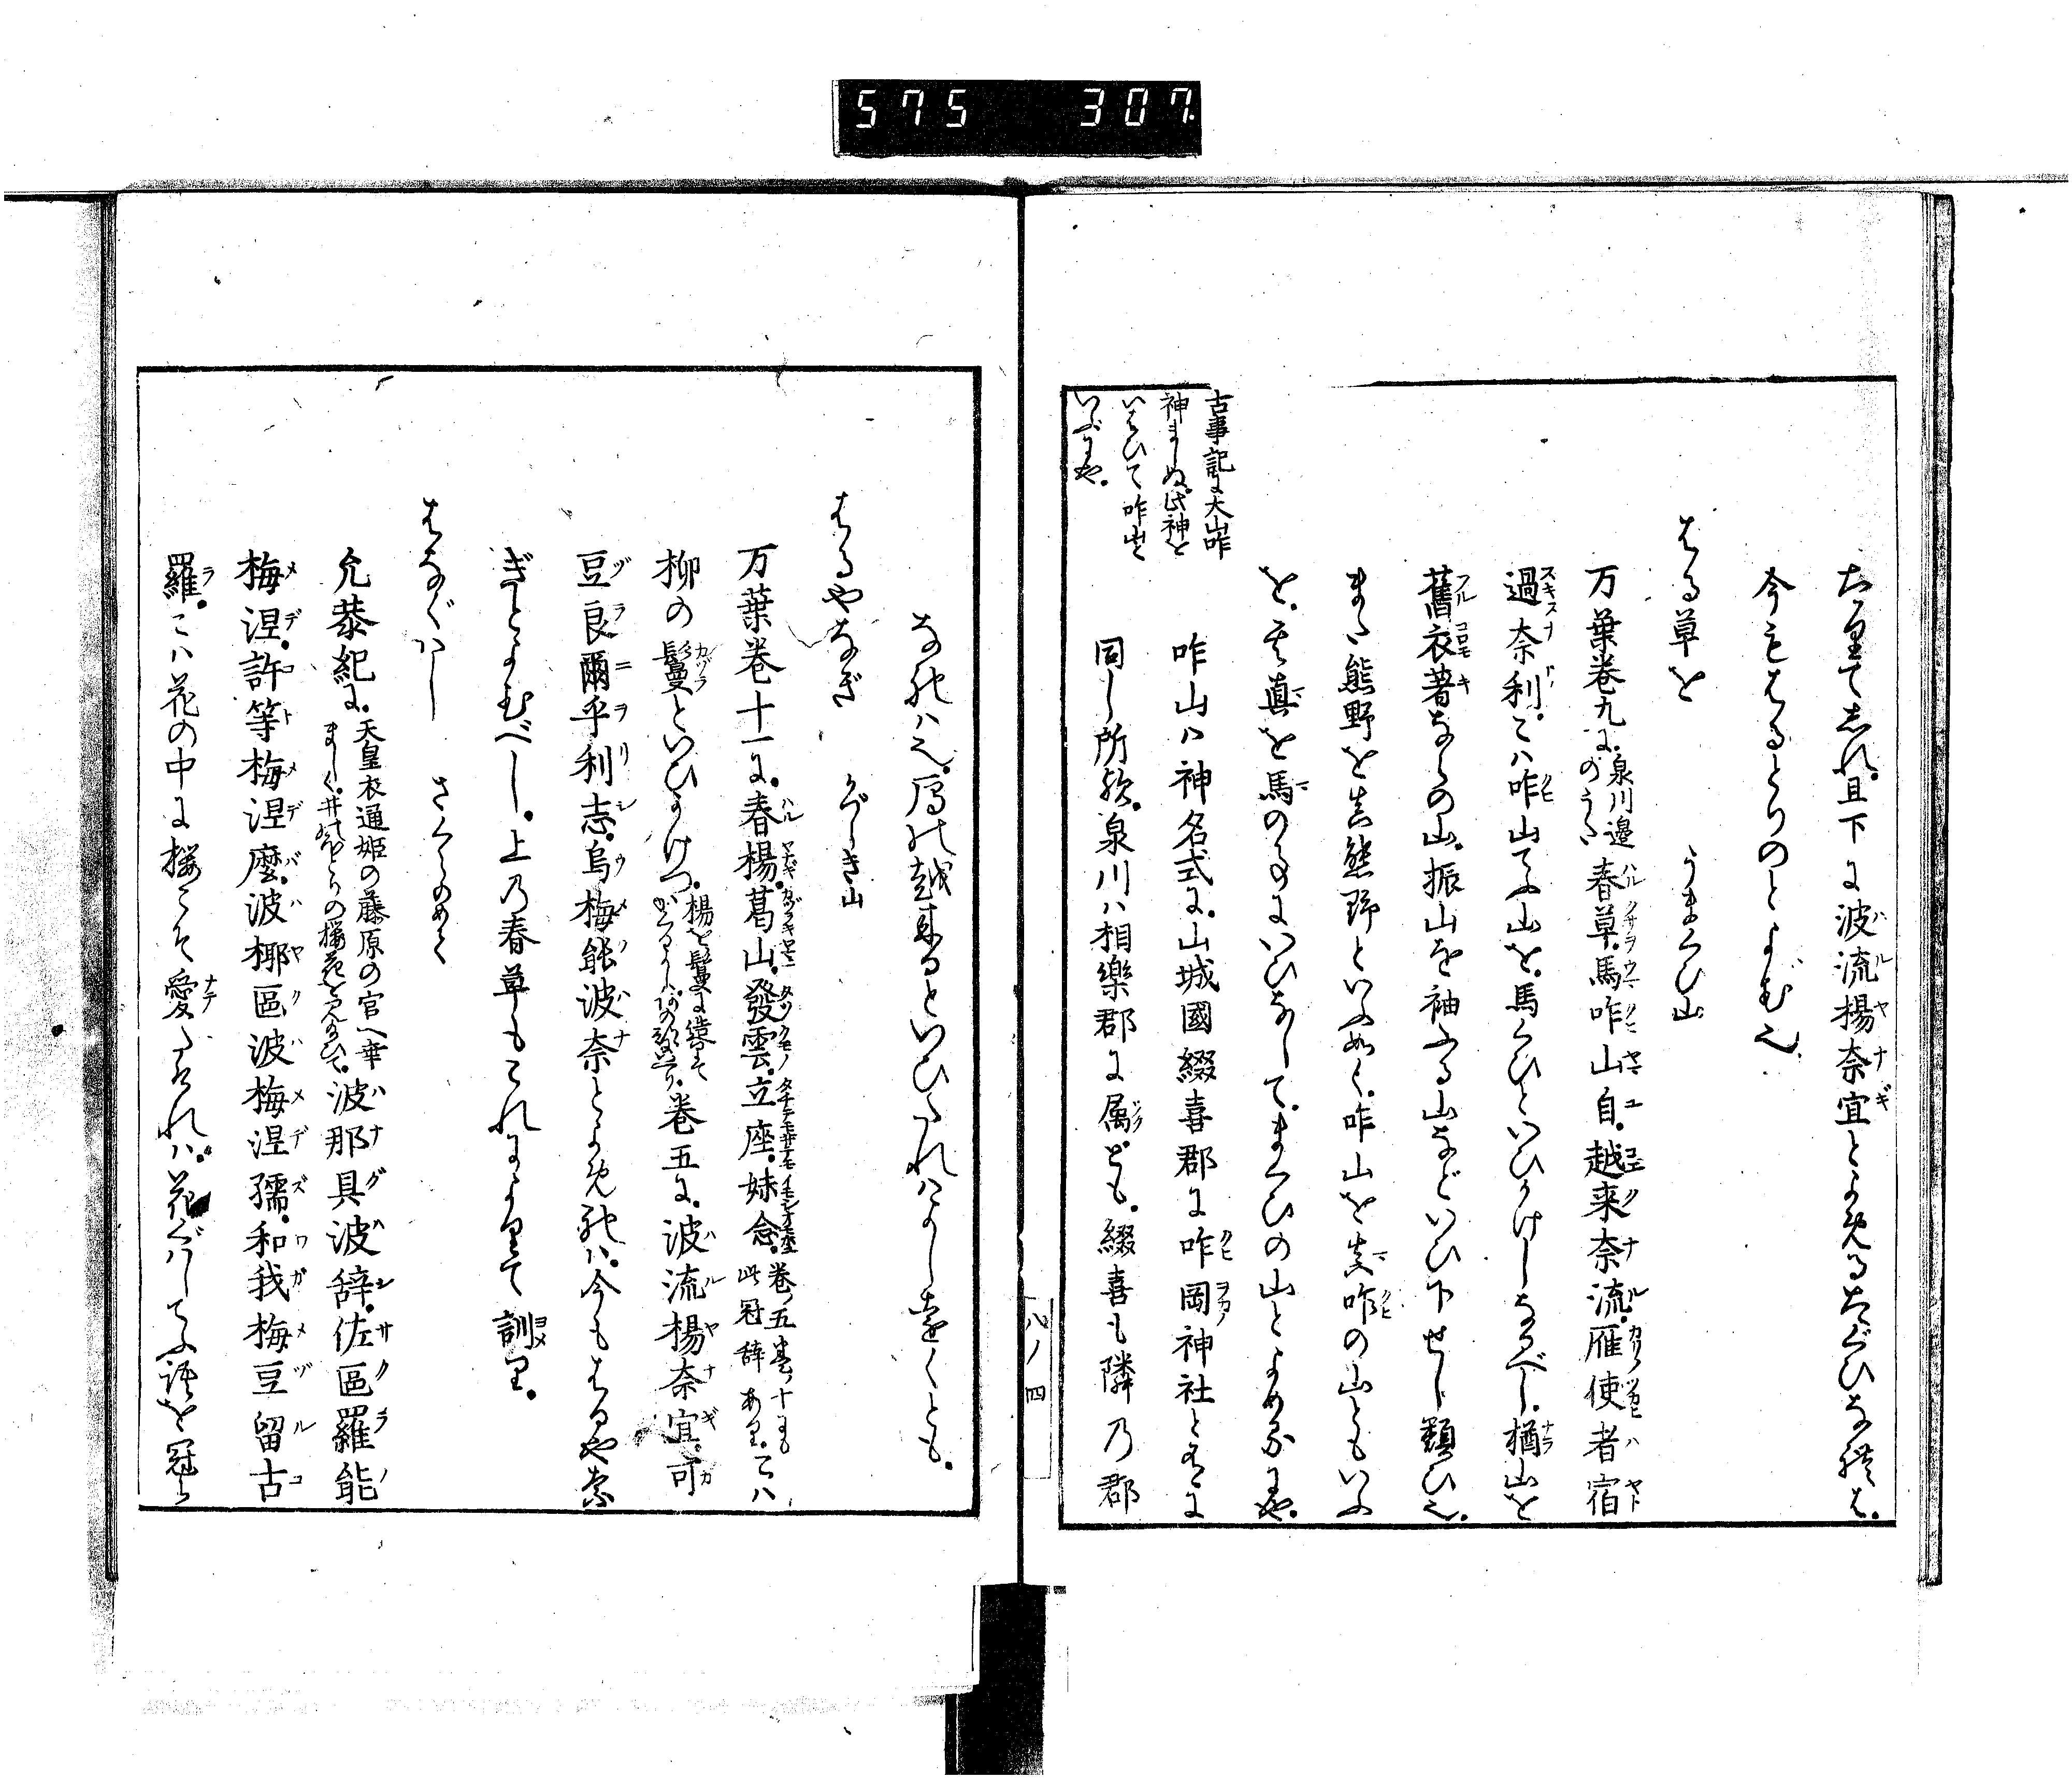 575 307.
こゝろえてしれ。且下に波流楊奈宜とよめるたぐひなればは。
今もはるとりのとよむ也。
はる草を うまくひ山
万葉巻九に。泉川邊のうた 春草。馬咋山自。越来奈流。雁使者宿
過奈利。こは咋山てふ山を。馬くひといひかけしなるべし。楢山を
舊衣著ならの山。振山を袖ふる山などいひ下せし類ひ也。
また熊野を真熊野といふ如く。咋山を真咋の山ともいふ
を。其真を馬のことにいひなして。まくひの山とよめるにや。
咋山は神名式に。山城國綴喜郡に咋岡神社と有に
同し所歟。泉川は相樂郡に属ども。綴喜も隣乃郡
古事記に大山咋
神ましぬ。此神を
いはひて咋山と
いふにや。
八ノ四
なれは也。馬の越来るといひたれはよし遠くとも。
はるやなぎ かづらき山
万葉巻十一に。春楊。葛山。發雲。立座。妹念。巻ノ五巻ノ十にも此冠辞あり。こは
柳の鬘といひかけつ。楊を鬘に造て 巻五に。波流楊奈宜。可
豆良爾乎利志。烏梅能波奈とよめれは。今もはるやな
ぎとよむべし。上乃春草もこれによりて訓り。
はなぐはし さくらのめで
允恭紀に。天皇衣通姫の藤原の宮へ幸まして。井のほとりの櫻花を見たまひて。波那具波辞。佐區羅能
梅涅。許等梅涅麼。波椰區波梅涅孺。和我梅豆留古
羅。こは花の中に櫻こそ愛たけれは。花ぐはしてふ語を冠ら